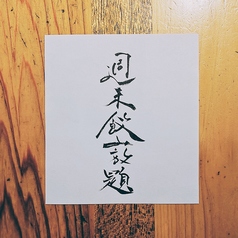 週末飲放題